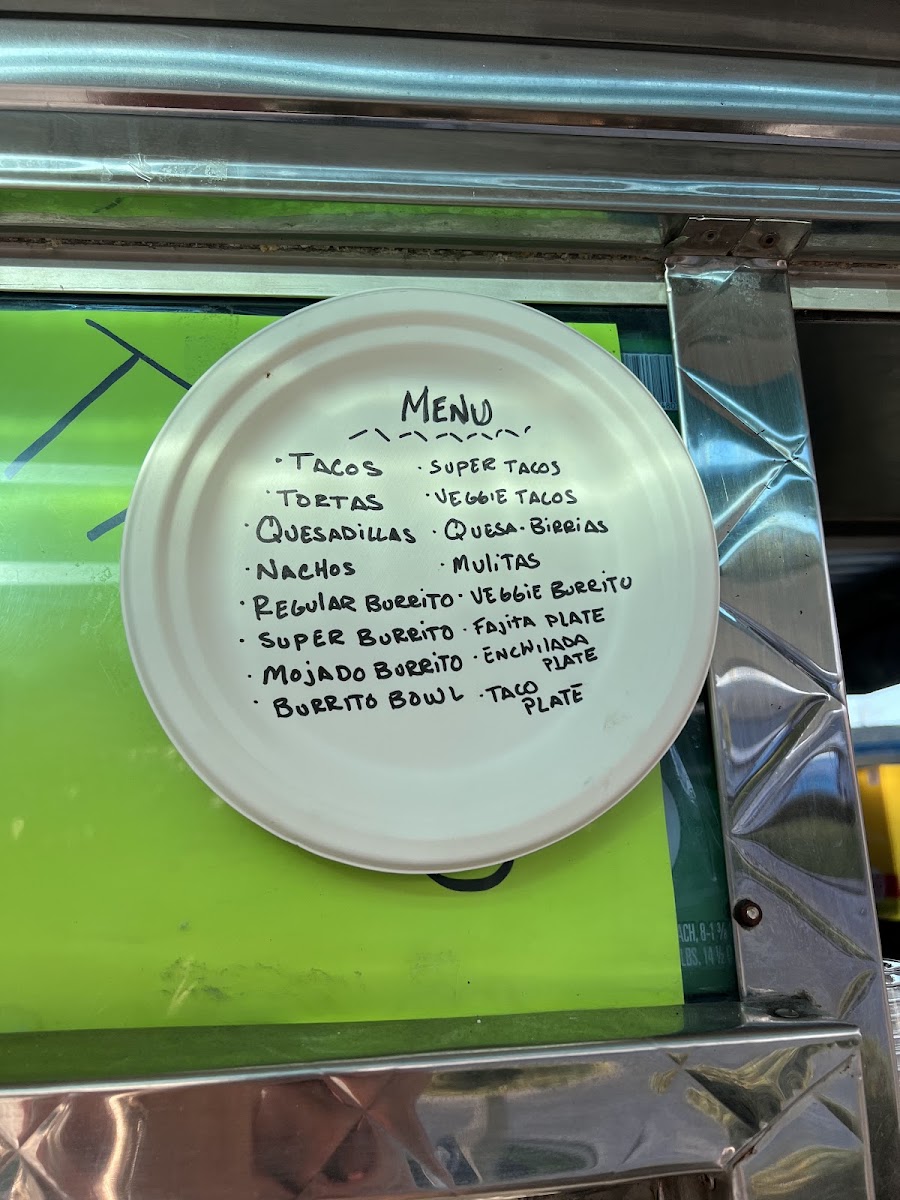 MENU
· TACOS
· TORTAS
· QUESADILLAS
· NACHOS
· REGULAR BURRITO
· SUPER BURRITO
· MOJADO BURRITO
· BURRITO BOWL
· SUPER TACOS
· VEGGIE TACOS
· QUESA-BIRRIAS
· MULITAS
· VEGGIE BURRITO
· FAJITA PLATE
· ENCHILADA
PLATE
· TACO
PLATE